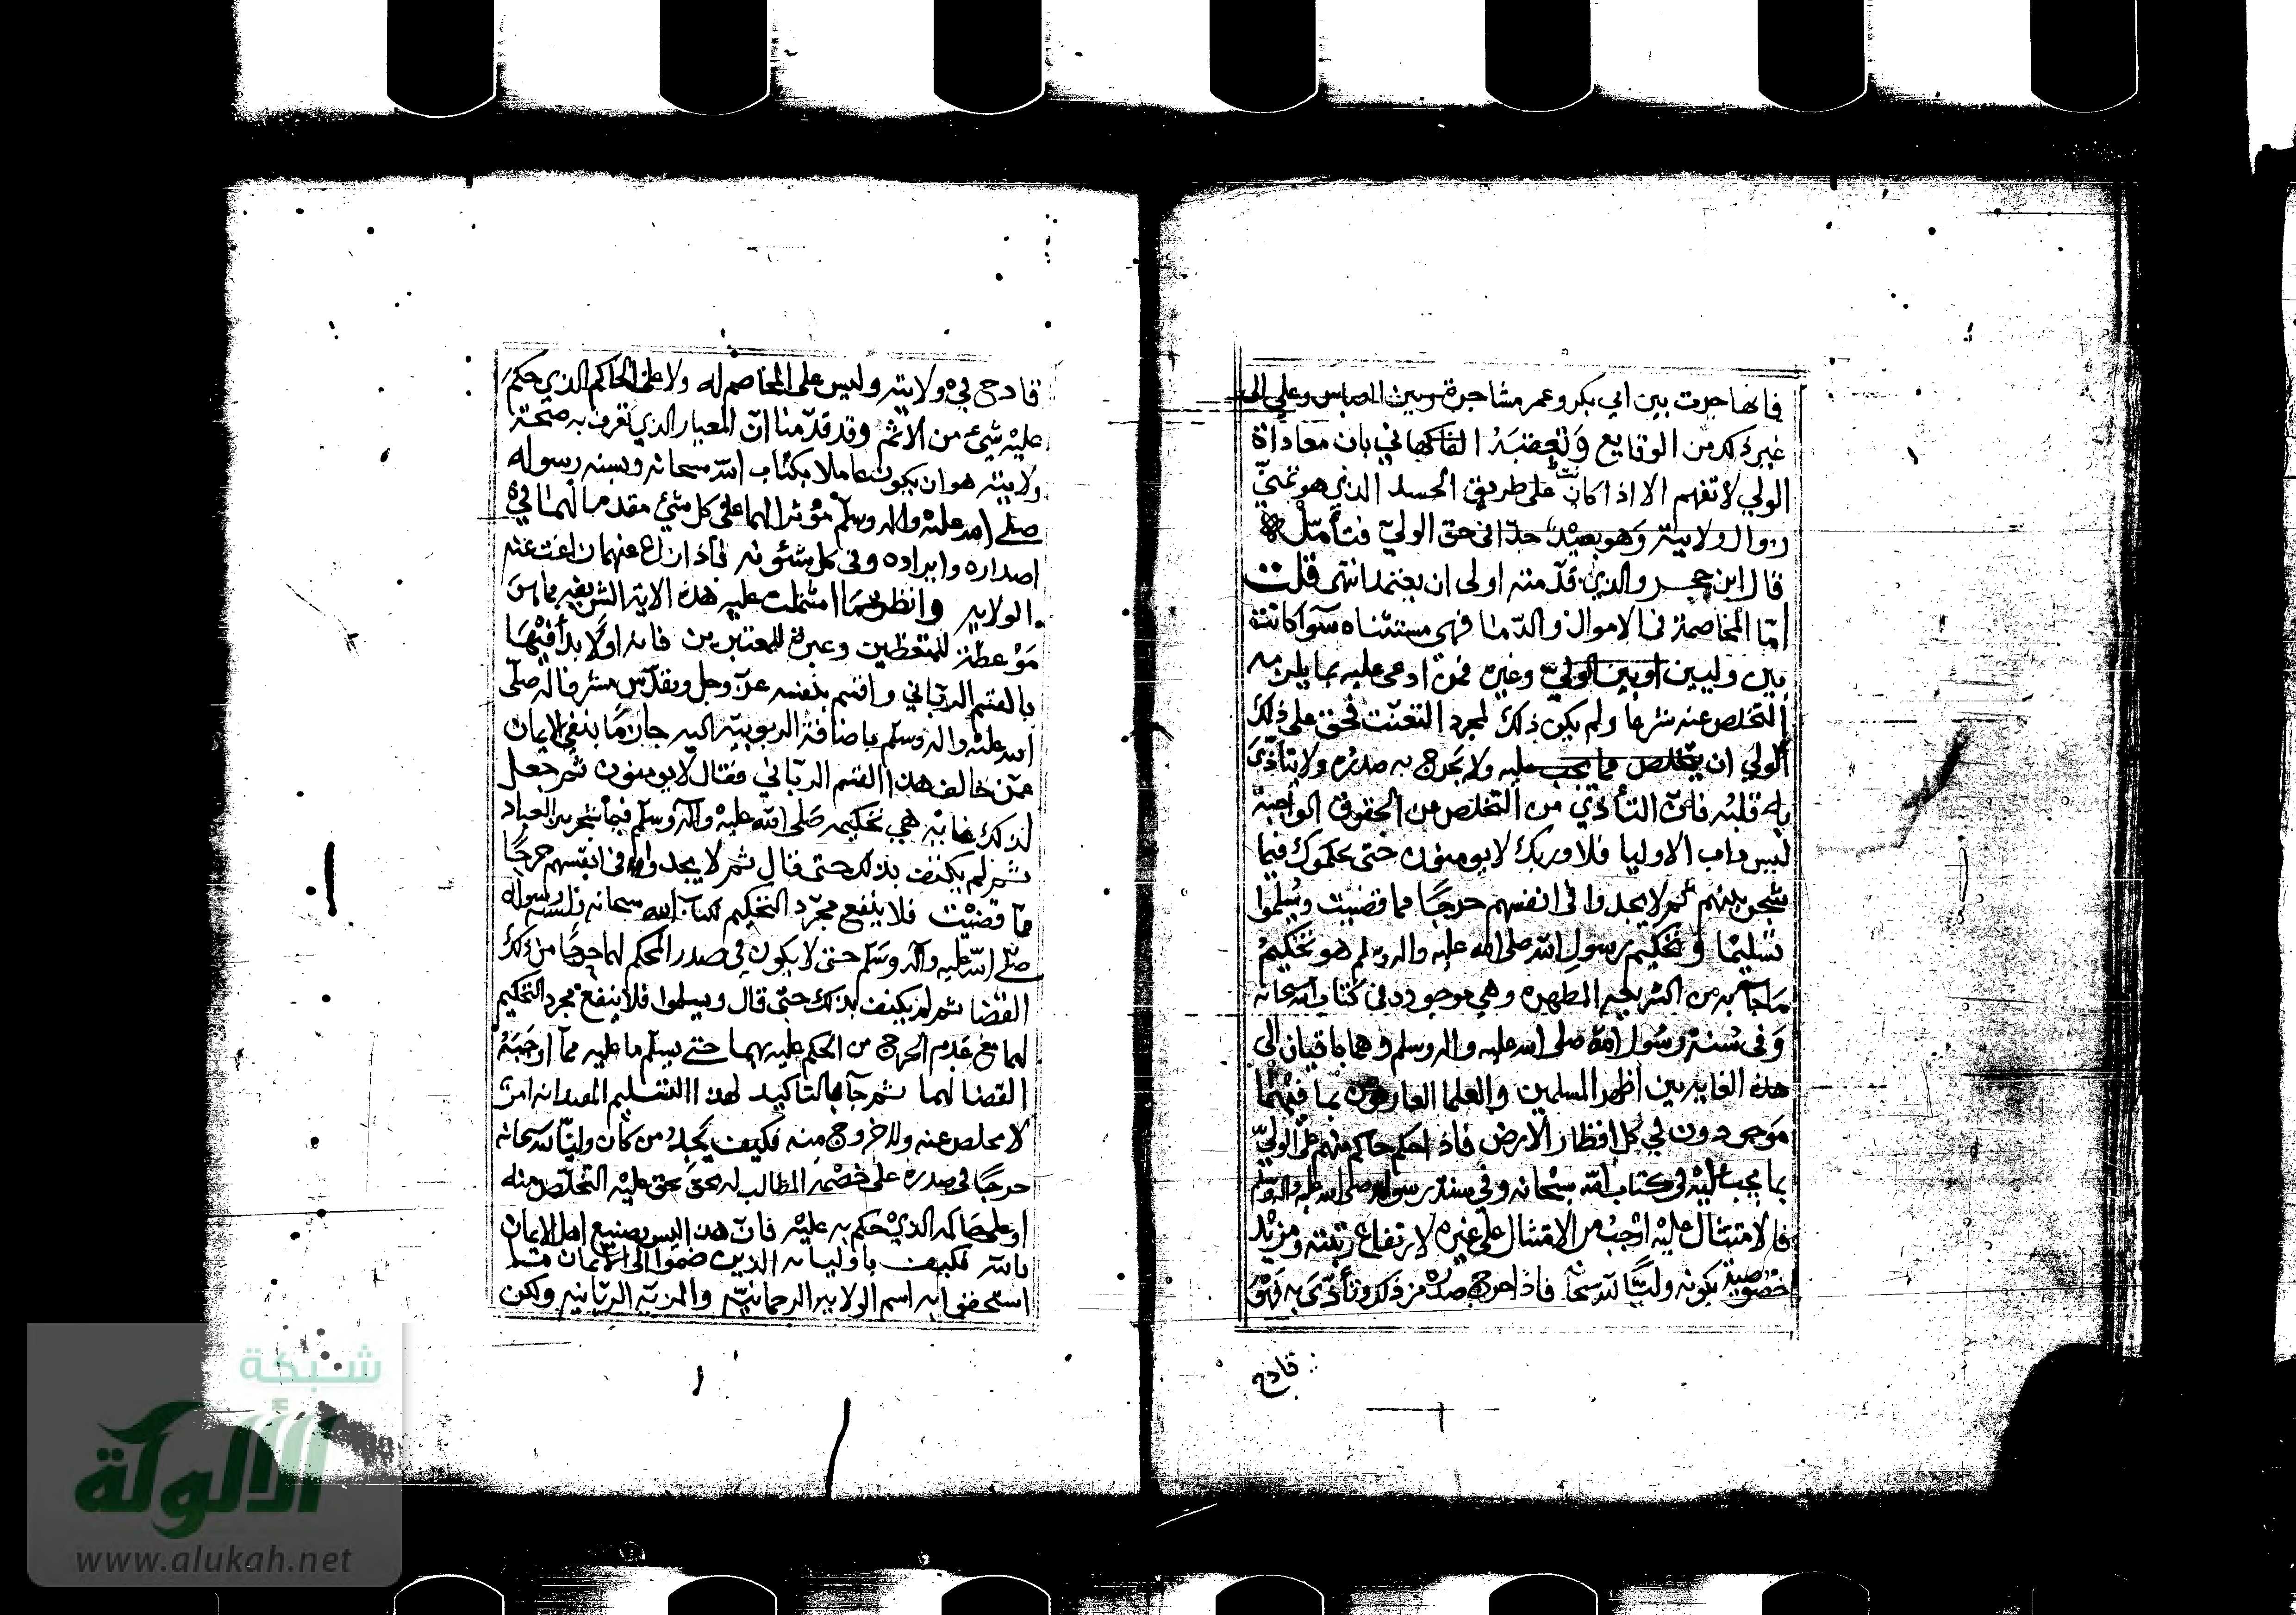 فانها جرت بين ابي بكر وعمر مشاجرة وبين العباس وعلي الى
غير ذلك من الوقايع وتعقبه الفاكهاني بان معاداة
الولي لا تفهم الا اذا كانت على طريق الحسد الذي هو تمني
زوال ولايته وهو بعيد جدا في حق الولي فتأمل
قال ابن حجر والذي قدمته اولى ان يعتمد انتهى قلت
امّا المخاصمة في الاموال والدما فهي مستثناه سوآ كانت
بين وليين او بين الولي وغيره فمن ادعى عليه بما يلزمه
التخلص عنه شرعا ولم يكن ذلك لمجرد التعنت فحق على ذلك
الولي ان يتخلص مما يجب عليه ولا يحرج به صدره ولا يتأذى
به قلبه فان التأذي من التخلص من الحقوق الواجبة
ليس داب الاوليا فلا وربك لا يومنون حتى يحكموك فيما
شجر بينهم ثم لا يجدوا في انفسهم حرجًا مما قضيت ويسلموا
تسليمًا وتحكيم رسول الله صلى الله عليه واله وسلم هو تحكيم
ما جآ به من الشريعه المطهره وهي موجوده في كتاب الله سبحانه
وفي سنة رسول الله صلى الله عليه واله وسلم وهما باقيان الى
هذه الغايه بين اظهر المسلمين والعلما العارفون بما فيهما
موجودون في كل اقطار الارض فاذا حكم حاكم منهم على الولي
بما يجب عليه في كتاب الله سبحانه وفي سنة رسوله صلى الله عليه واله وسلم
فالامتثال عليه اوجب من الامتثال على غيره لارتفاع رتبته ومزيد
خصوصية بكونه وليًّا لله سبحانه فاذا حرج صدره من ذلك وتأذى به فهو
قادح
قادح في ولايته وليس على المخاصم له ولا على الحاكم الذي حكم
عليه شيء من الاثم وقد قدمنا ان المعيار الذي تعرف به صحة
ولايته هو ان يكون عاملا بكتاب الله سبحانه وبسنه رسوله
صلى الله عليه واله وسلم مؤثرا لهما على كل شيء مقدما لهما في
اصداره وايراده وفي كل شئونه فاذا زاغ عنهما زاغت عنه
الولايه وانظر فيما اشتملت عليه هذه الاية الشريفه مما هو
موعظة للمتعظين وعبرة للمعتبرين فانه اولًا بدأ فيها
بالقسم الرباني واقسم بنفسه عز وجل وبقدس شرفا له صلى
الله عليه واله وسلم باضافة الربوبيّة اليه جازمًا بنفي الايمان
عمّن خالف هذا القسم الرباني فقال لا يومنون ثم جعل
لذلك غاية هي تحكيمه صلى الله عليه وآله وسلم فيما شجر بين العباد
ثم لم يكتف بذلك حتى قال ثم لا يجدوا في انفسهم حرجًا
مما قضيت فلا ينفع مجرد التحكيم لكتاب الله سبحانه ولسنة رسوله
صلى الله عليه وآله وسلم حتى لا يكون في صدر المحكم لهما حرجًا من ذلك
القضا ثم لم يكتف بذلك حتى قال ويسلموا فلا ينفع مجرد التحكيم
لهما مع عدم الحرج من الحكم عليه بهما حتى يسلم ما عليه مما اوجبه
القضا لهما ثم جآ بالتاكيد لهذا التسليم المفيد انه امر
لا مخلص عنه ولا خروج منه فكيف يجد من كان وليًّا لله سبحانه
حرجًا في صدره على خصمه المطالب له بحق يحق عليه التخلص منه
او على حاكمه الذي حكم به عليه فان هذا ليس بصنيع اهل الايمان
بالله فكيف باوليائه الذين ضموا الى الايمان ما
استحقوا به اسم الولايه الرحمانيّه والمزية الربانيه ولكن
شبكة
الألوكة
www.alukah.net